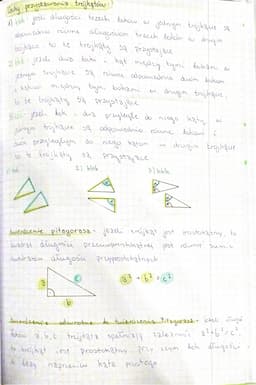 Cechy przystawania trójkątów
1) bbb jeśli długości trzech boków w jednym trójkącie są
odpowiednio równe długościom trzech boków w drugim
trójkącie to te trójkąty są przystające
2) bkb: jeżeli dwa boki i kąt między tymi bokami w
jednym trójkącie są równe odpowiednio dwóm bokom
i kątowi między tymi bokami w drugim trójkącie,
to te trójkąty są przystające
jeżeli bok i dwa przyległe do niego kąty w
jednym trójkącie są odpowiednio równe bokowi i
dwóm przyległym do niego kątom w drugim trójkącie
to te trójkąty są przystające
1) bbb 2) bkb 3) kbk
Twierdzenie pitagorasa - jeżeli trójkąt jest prostokątny, to
kwadrat długości przeciwprostokątnej jest równy sumie
kwadratów długości przyprostokątnych
a c
b
a² + b² = c²
Twierdzenie odwrotne do twierdzenia Pitagorasa - jeżeli długości
boków a, b, c trójkąta spełniają zależność a²+b²=c²,
to trójkąt jest prostokątny przy czym bok długości
c leży naprzeciw kąta prostego